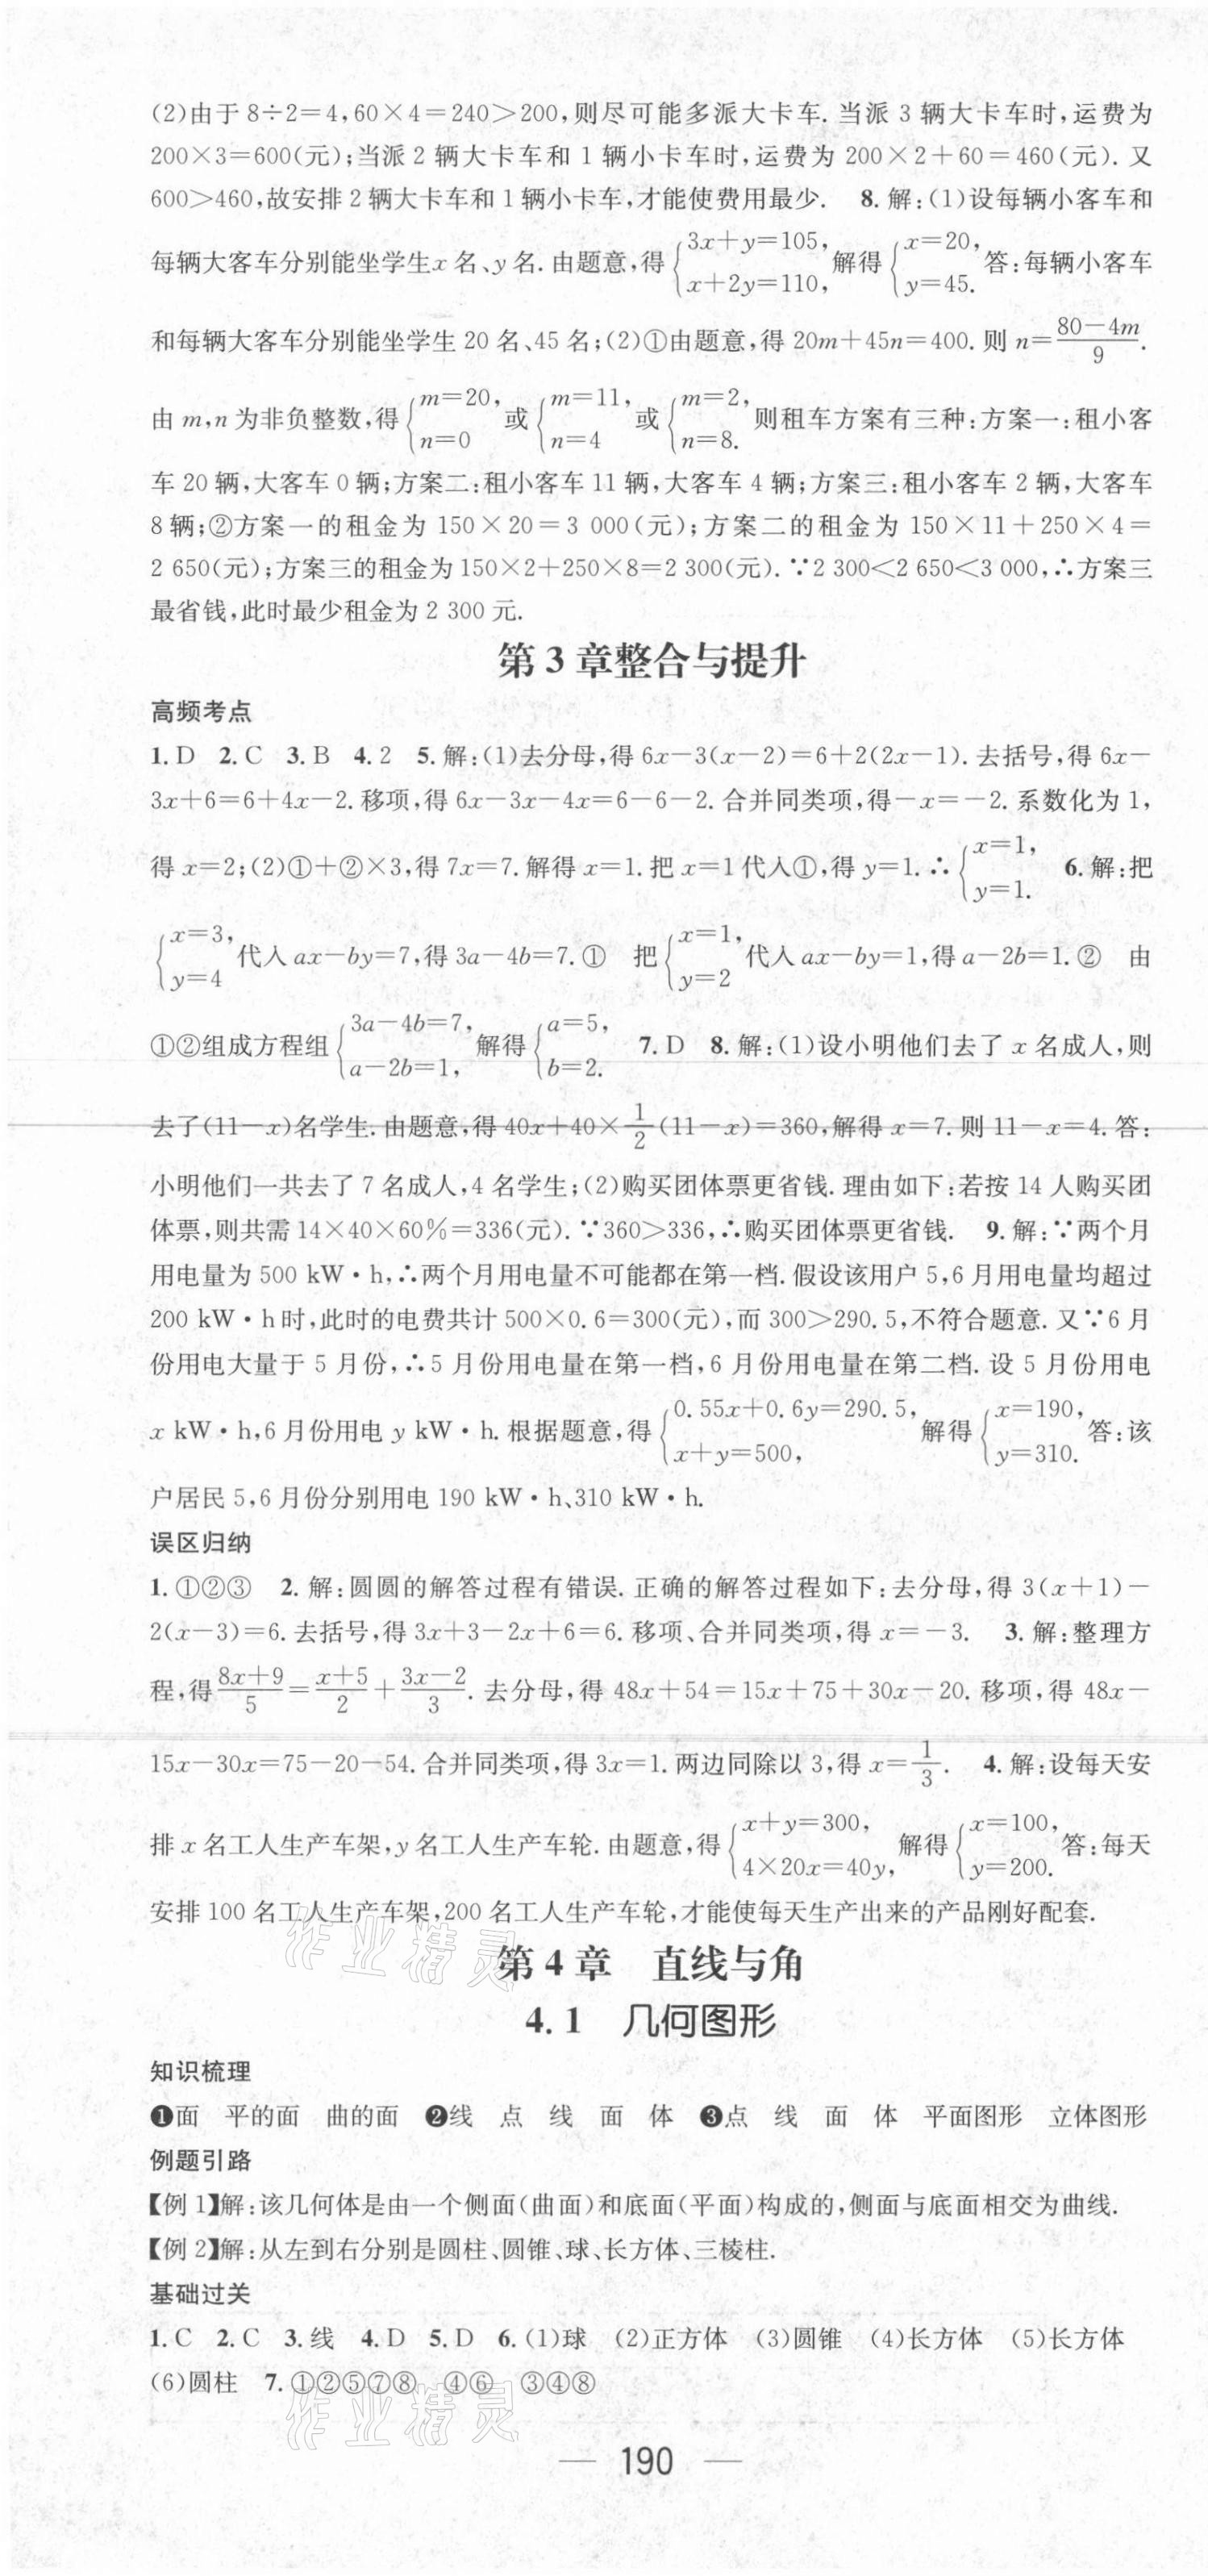 (2)由于 8÷2=4,60×4=240>200,则尽可能多派大卡车. 当派 3 辆大卡车时,运费为
200×3=600(元);当派 2 辆大卡车和 1 辆小卡车时,运费为 200×2+60=460(元). 又
600>460,故安排 2 辆大卡车和 1 辆小卡车,才能使费用最少. 8. 解:(1)设每辆小客车和
每辆大客车分别能坐学生 x 名、y 名. 由题意,得{3x+y=105, x+2y=110, 解得{x=20, y=45. 答:每辆小客车
和每辆大客车分别能坐学生 20 名、45 名;(2)①由题意,得 20m+45n=400. 则 n=(80-4m)/9.
由 m,n 为非负整数,得{m=20, n=0 或{m=11, n=4 或{m=2, n=8. 则租车方案有三种:方案一:租小客
车 20 辆,大客车 0 辆;方案二:租小客车 11 辆,大客车 4 辆;方案三:租小客车 2 辆,大客车
8 辆;②方案一的租金为 150×20=3 000(元);方案二的租金为 150×11+250×4=
2 650(元);方案三的租金为 150×2+250×8=2 300(元). ∵2 300<2 650<3 000,∴方案三
最省钱,此时最少租金为 2 300 元.
第 3 章整合与提升
高频考点
1. D 2. C 3. B 4. 2 5. 解:(1)去分母,得 6x-3(x-2)=6+2(2x-1). 去括号,得 6x-
3x+6=6+4x-2. 移项,得 6x-3x-4x=6-6-2. 合并同类项,得-x=-2. 系数化为 1,
得 x=2;(2)①+②×3,得 7x=7. 解得 x=1. 把 x=1 代入①,得 y=1. ∴{x=1, y=1. 6. 解:把
{x=3, y=4 代入 ax-by=7,得 3a-4b=7. ① 把{x=1, y=2 代入 ax-by=1,得 a-2b=1. ② 由
①②组成方程组{3a-4b=7, a-2b=1, 解得{a=5, b=2. 7. D 8. 解:(1)设小明他们去了 x 名成人,则
去了(11-x)名学生. 由题意,得 40x+40×1/2(11-x)=360,解得 x=7. 则 11-x=4. 答:
小明他们一共去了 7 名成人,4 名学生;(2)购买团体票更省钱. 理由如下:若按 14 人购买团
体票,则共需 14×40×60%=336(元). ∵360>336,∴购买团体票更省钱. 9. 解:∵两个月
用电量为 500 kW·h,∴两个月用电量不可能都在第一档. 假设该用户 5,6 月用电量均超过
200 kW·h 时,此时的电费共计 500×0.6=300(元),而 300>290.5,不符合题意. 又∵6 月
份用电大量于 5 月份,∴5 月份用电量在第一档,6 月份用电量在第二档. 设 5 月份用电
x kW·h,6 月份用电 y kW·h. 根据题意,得{0.55x+0.6y=290.5, x+y=500, 解得{x=190, y=310. 答:该
户居民 5,6 月份分别用电 190 kW·h、310 kW·h.
误区归纳
1. ①②③ 2. 解:圆圆的解答过程有错误. 正确的解答过程如下:去分母,得 3(x+1)-
2(x-3)=6. 去括号,得 3x+3-2x+6=6. 移项、合并同类项,得 x=-3. 3. 解:整理方
程,得(8x+9)/5=(x+5)/2+(3x-2)/3. 去分母,得 48x+54=15x+75+30x-20. 移项,得 48x-
15x-30x=75-20-54. 合并同类项,得 3x=1. 两边同除以 3,得 x=1/3. 4. 解:设每天安
排 x 名工人生产车架,y 名工人生产车轮. 由题意,得{x+y=300, 4×20x=40y, 解得{x=100, y=200. 答:每天
安排 100 名工人生产车架,200 名工人生产车轮,才能使每天生产出来的产品刚好配套.
作业精灵
第 4 章 直线与角
4.1 几何图形
知识梳理
❶面 平的面 曲的面 ❷线 点 线 面 体 ❸点 线 面 体 平面图形 立体图形
例题引路
【例 1】解:该几何体是由一个侧面(曲面)和底面(平面)构成的,侧面与底面相交为曲线.
【例 2】解:从左到右分别是圆柱、圆锥、球、长方体、三棱柱.
基础过关
1. C 2. C 3. 线 4. D 5. D 6. (1)球 (2)正方体 (3)圆锥 (4)长方体 (5)长方体
(6)圆柱 7. ①②⑤⑦⑧ ④⑥ ③④⑧
作业精灵
— 190 —